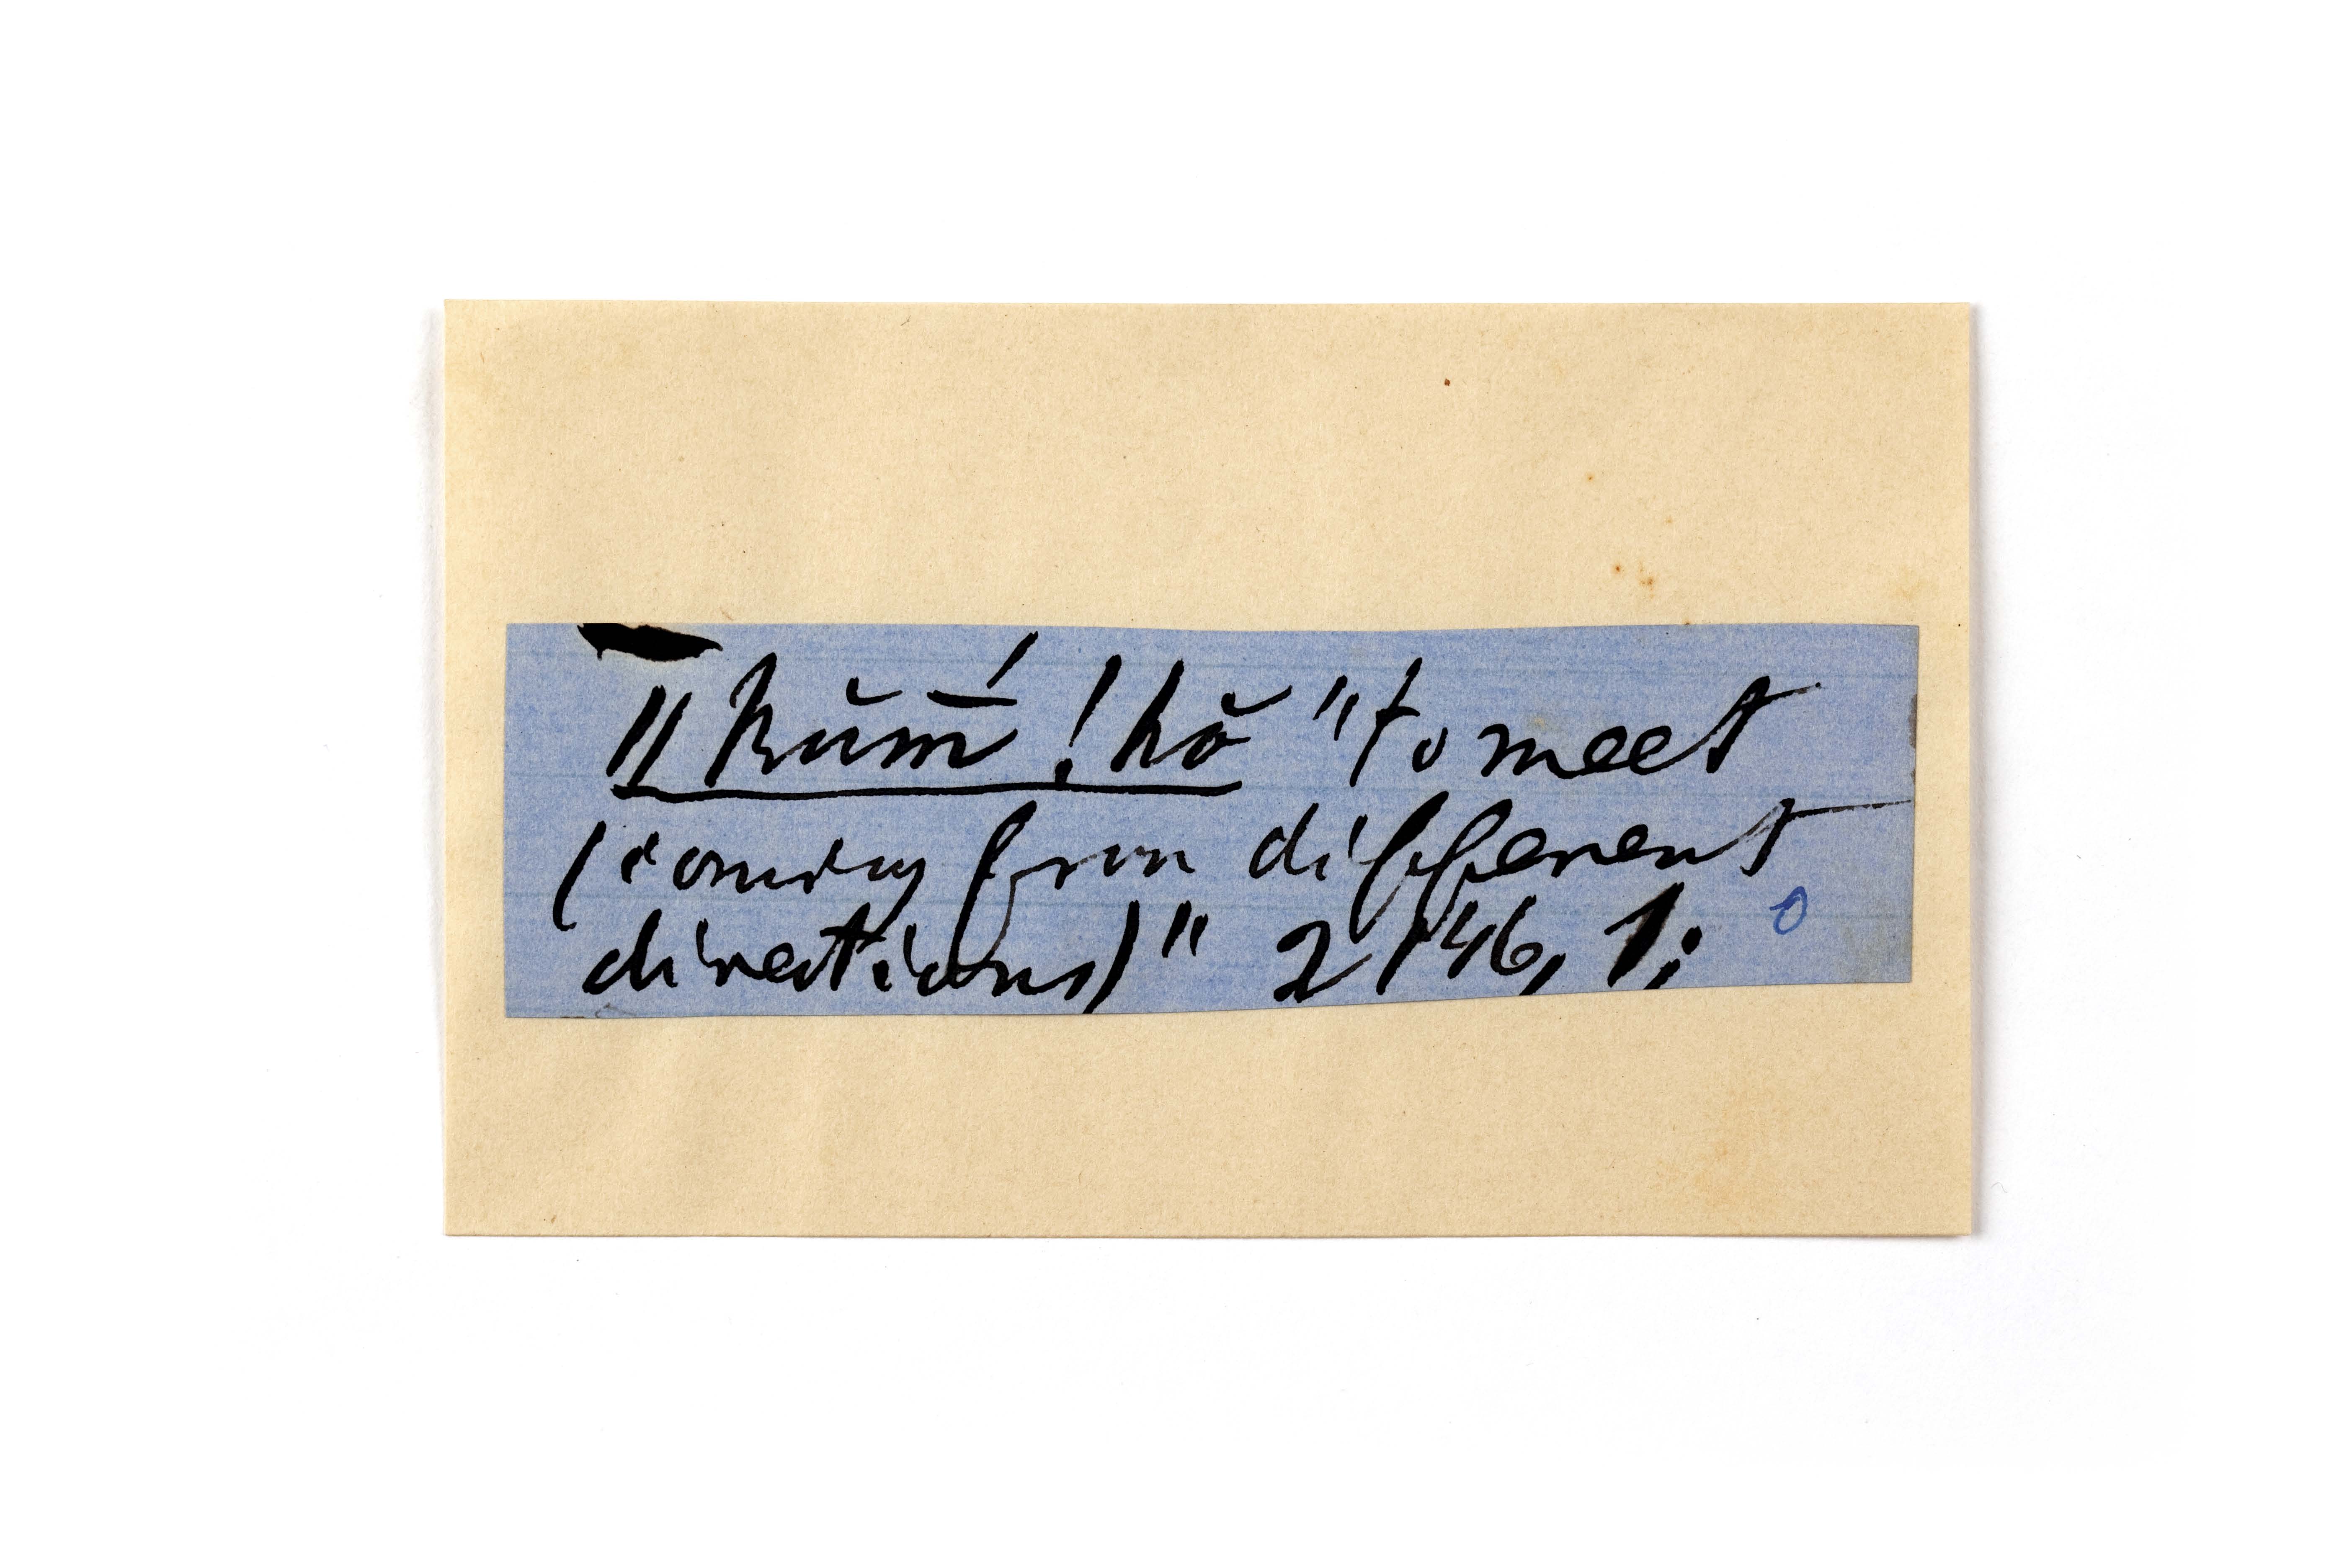 ǁkŭm̄́ !hŏ "to meet
(coming from different
directions)" 2146, 1;